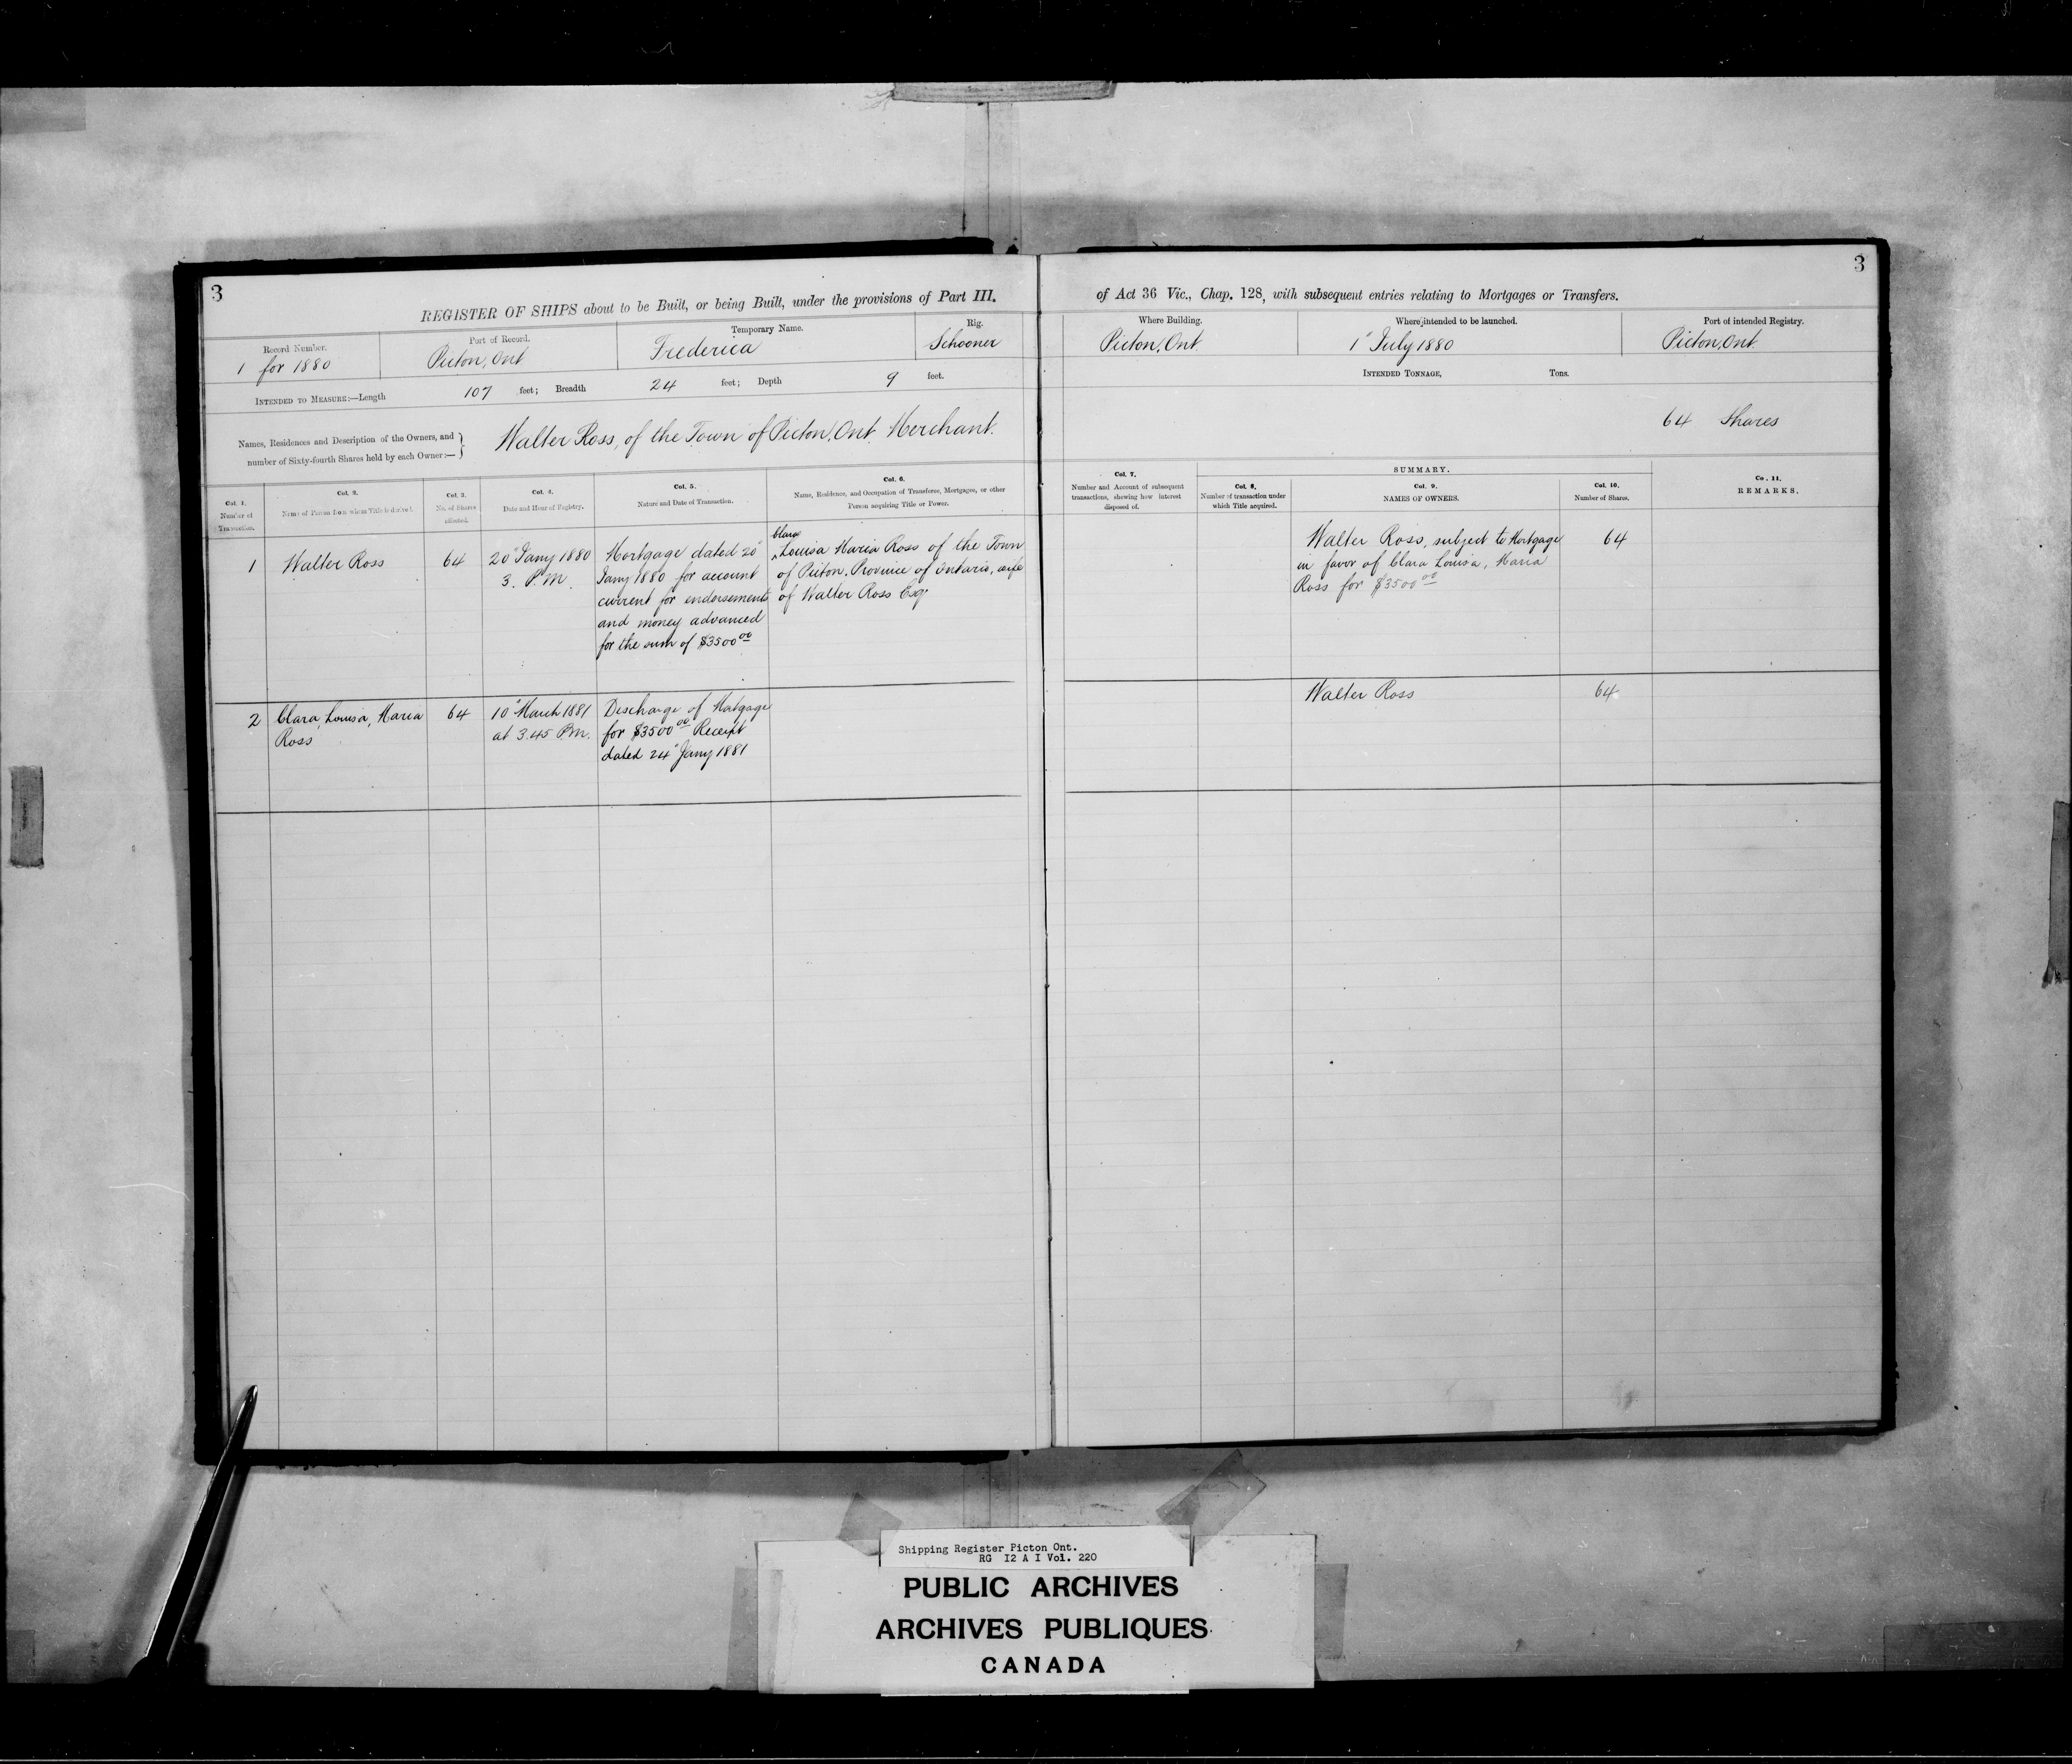 3
REGISTER OF SHIPS about to be Built, or being Built, under the provisions of Part III.
Record Number.
1 for 1880
Port of Record.
Picton, Ont
Temporary Name.
Frederica
Rig.
Schooner
INTENDED TO MEASURE:—Length 107 feet; Breadth 24 feet; Depth 9 feet.
Names, Residences and Description of the Owners, and
number of Sixty-fourth Shares held by each Owner:—
Walter Ross, of the Town of Picton, Ont. Merchant.
Col. 1.
Number of
Transaction.
Col. 2.
Name of Person from whom Title is derived.
Col. 3.
No. of Shares
affected.
Col. 4.
Date and Hour of Registry.
Col. 5.
Nature and Date of Transaction.
Col. 6.
Name, Residence, and Occupation of Transferee, Mortgagee, or other
Person acquiring Title or Power.
1
Walter Ross
64
20" Jany 1880
3. P.M.
Mortgage dated 20"
Jany 1880 for account
current for endorsements
and money advanced
for the sum of $3500 00
Clara
Louisa Maria Ross of the Town
of Picton, Province of Ontario, wife
of Walter Ross Esqr
2
Clara, Louisa, Maria
Ross
64
10" March 1881
at 3.45 P.M.
Discharge of Matgage
for $3500 00 Receipt
dated 24" Jany 1881
3
of Act 36 Vic., Chap. 128, with subsequent entries relating to Mortgages or Transfers.
Where Building.
Picton, Ont.
Where intended to be launched.
1" July 1880
Port of intended Registry.
Picton, Ont.
INTENDED TONNAGE, Tons.
64 Shares
Col. 7.
Number and Account of subsequent
transactions, shewing how interest
disposed of.
SUMMARY.
Col. 8.
Number of transaction under
which Title acquired.
Col. 9.
NAMES OF OWNERS.
Col. 10.
Number of Shares.
Co. 11.
REMARKS.
Walter Ross, subject to Mortgage
in favor of Clara Louisa, Maria
Ross for $3500 00
64
Walter Ross
64
Shipping Register Picton Ont.
RG I2 A I Vol. 220
PUBLIC ARCHIVES
ARCHIVES PUBLIQUES
CANADA